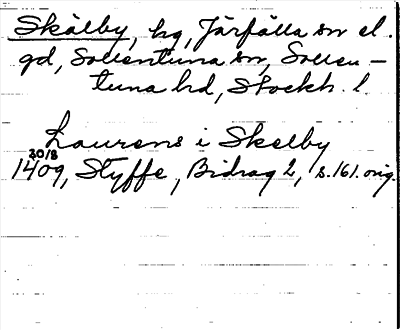 Skälby, hg, Järfälla sn el.
gd, Sollentuna sn, Sollen-
tuna hd, Stockh. l.
Laurens i Skelby
30/8
1409, Styffe, Bidrag 2, s. 161. orig.